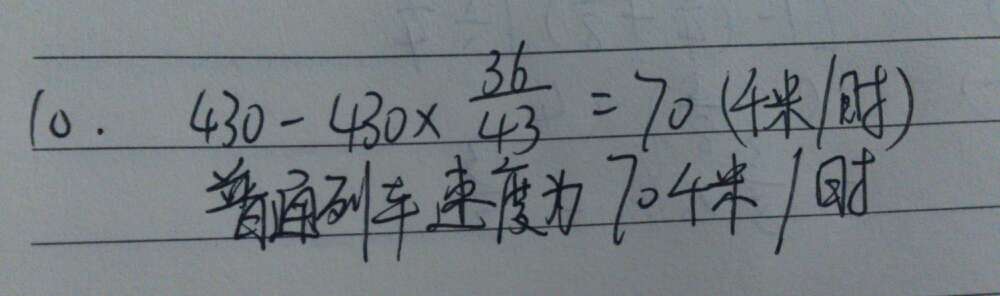 10. 430-430×36/43=70(千米/时)
普通列车速度为70千米/时